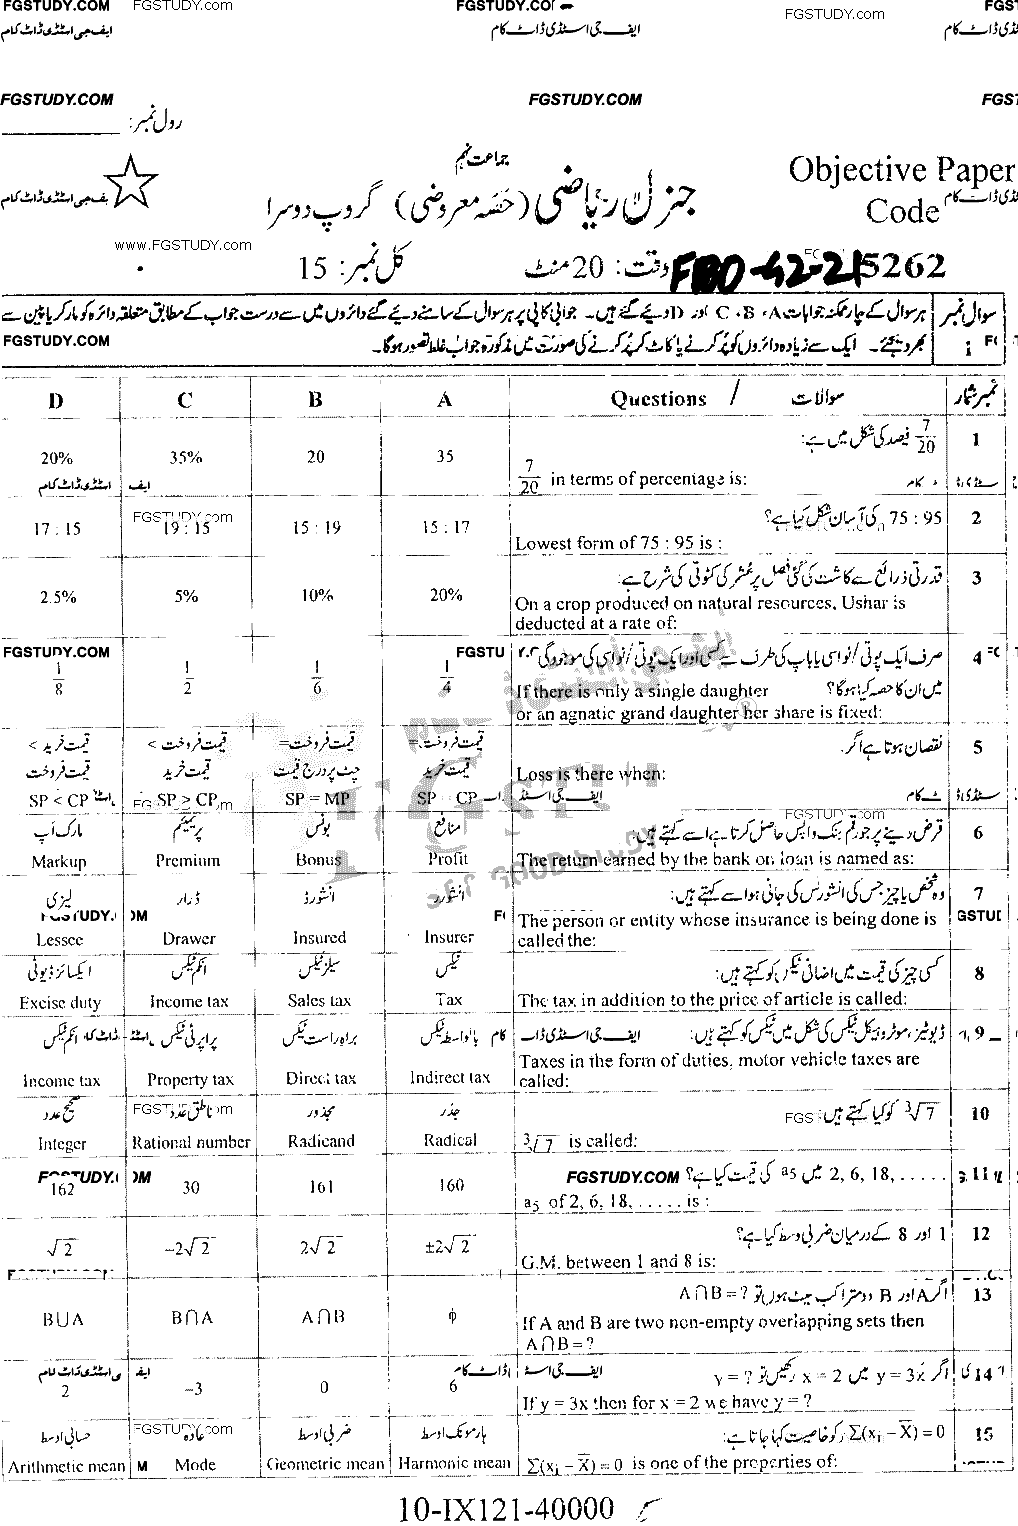 FGSTUDY.COM FGSTUDY.com FGSTUDY.CO FGSTUDY.com FGS
ایف جی اسٹڈی ڈاٹ کام ایف جی اسٹڈی ڈاٹ کام ڈی ڈاٹ کام
FGSTUDY.COM FGSTUDY.COM FGS
رول نمبر:
جماعت نہم
Objective Paper
جنرل ریاضی (حصہ معروضی) گروپ دوسرا
Code
www.FGSTUDY.com
وقت: 20 منٹ کل نمبر: 15
FBD-42-21 5262
سوال نمبر 1
ہر سوال کے چار ممکنہ جوابات A، B، C اور D دیے گئے ہیں۔ جوابی کاپی پر ہر سوال کے سامنے دیے گئے دائروں میں سے درست جواب کے مطابق متعلقہ دائرہ کو مارکر یا پین سے
بھر دیجئے۔ ایک سے زیادہ دائروں کو پُر کرنے یا کاٹ کر پُر کرنے کی صورت میں مذکورہ جواب غلط تصور ہوگا۔
FGSTUDY.COM
D C B A Questions / سوالات نمبر شمار
1 7/20 فیصد کی شکل میں ہے:
7/20 in terms of percentage is:
20% 35% 20 35
2 75 : 95 کی آسان شکل کیا ہے؟
Lowest form of 75 : 95 is :
17 : 15 19 : 15 15 : 19 15 : 17
3 قدرتی ذرائع سے کاشت کی گئی فصل پر عشر کی کٹوتی کی شرح ہے:
On a crop produced on natural resources, Ushar is
deducted at a rate of:
2.5% 5% 10% 20%
4 صرف ایک پوتی/نواسی یا باپ کی طرف سے کسی اور ایک پوتی/نواسی کی موجودگی
میں ان کا حصہ کیا ہوگا؟
If there is only a single daughter
or an agnatic grand daughter her share is fixed:
1/8 1/2 1/6 1/4
5 نقصان ہوتا ہے اگر:
Loss is there when:
قیمت خرید > قیمت فروخت < قیمت فروخت= قیمت فروخت=
قیمت فروخت قیمت خرید چٹ پر درج قیمت قیمت خرید
SP < CP SP > CP SP = MP SP = CP
6 قرض دینے پر جو رقم بنک واپس حاصل کرتا ہے، اسے کہتے ہیں:
The return earned by the bank on loan is named as:
مارک اَپ پریمیئم بونس منافع
Markup Premium Bonus Profit
7 وہ شخص یا چیز جس کی انشورنس کی جانی ہو اسے کہتے ہیں:
The person or entity whose insurance is being done is
called the:
لیزی ڈرار انشورڈ انشورر
Lessee Drawer Insured Insurer
8 کسی چیز کی قیمت میں اضافی ٹیکس کو کہتے ہیں:
The tax in addition to the price of article is called:
ایکسائز ڈیوٹی انکم ٹیکس سیلز ٹیکس ٹیکس
Excise duty Income tax Sales tax Tax
9 ڈیوٹیز، موٹر وہیکل ٹیکس کی شکل میں ٹیکس کو کہتے ہیں:
Taxes in the form of duties, motor vehicle taxes are
called:
انکم ٹیکس پراپرٹی ٹیکس براہ راست ٹیکس بالواسطہ ٹیکس
Income tax Property tax Direct tax Indirect tax
10 ∛7 کو کیا کہتے ہیں:
∛7 is called:
صحیح عدد ناطق عدد مجذور جذر
Integer Rational number Radicand Radical
11 2, 6, 18, ..... میں a₅ کی قیمت کیا ہے؟
a₅ of 2, 6, 18, ..... is :
162 30 161 160
12 1 اور 8 کے درمیان ضربی وسط کیا ہے؟
G.M. between 1 and 8 is:
√2 −2√2 2√2 ±2√2
13 اگر A اور B دو متراکب سیٹ ہوں تو A∩B = ?
If A and B are two non-empty overlapping sets then
A∩B = ?
B∪A B∩A A∩B ϕ
14 اگر y = 3x میں x = 2 رکھیں تو y = ?
If y = 3x then for x = 2 we have y = ?
2 −3 0 6
15 Σ(xᵢ – X̅) = 0 کو خاصیت کہا جاتا ہے:
Σ(xᵢ – X̅) = 0 is one of the properties of:
حسابی اوسط عادہ ضربی اوسط ہارمونک اوسط
Arithmetic mean Mode Geometric mean Harmonic mean
10-IX121-40000